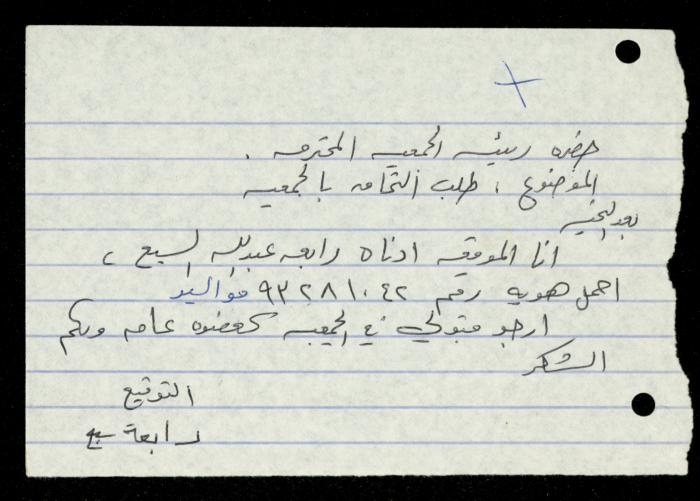 حضره رئيسه الجمعيه المحترمه .
الموضوع : طلب التحاق بالجمعيه
بعد التحيه
انا الموقعه ادناه رابعه عبدالله السبع ،
احمل هويه رقم ٩٣٢٨١٠٤٢ مواليد
ارجو قبولي في الجمعيه كعضوه عامه ولكم
الشكر
التوقيع
رابعة سبع